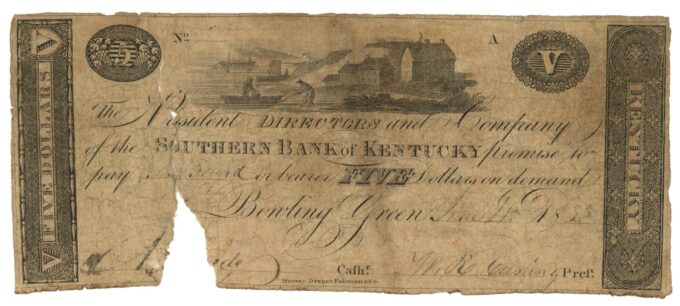 No.
A
FIVE DOLLARS
V
V
V
KENTUCKY
The President DIRECTORS and Company
of the SOUTHERN BANK of KENTUCKY promise to
pay or bearer FIVE Dollars on demand
Bowling Green
Cashr.
Prest.
Murray Draper Fairman & Co.